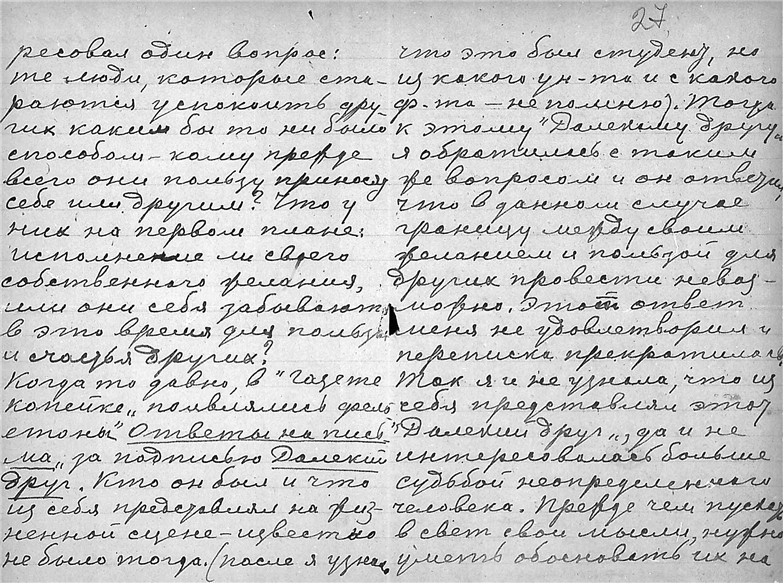 27.
ресовал один вопрос:
те люди, которые ста-
раются успокоить дру
гих каким бы то ни было
способом – кому прежде
всего они пользу приносят
себе или другим? Что у
них на первом плане:
исполнение ли своего
собственного желания,
или они себя забывают
в это время для пользы
и счастья других?
Когда то давно, в "Газете
копейке" появлялись фель
етоны "Ответы на пись
ма" за подписью Далекий
друг. Кто он был и что
из себя представлял на жиз-
ненной сцене – известно
не было тогда. (после я узнала,
что это был студент, но
из какого ун-та и с какого
ф-та – не помню). Тогда
к этому "Далекому другу"
я обратилась с таким
же вопросом и он ответил,
что в данном случае
границу между своим
желанием и пользой для
других провести невоз-
можно. Этот ответ
меня не удовлетворил и
переписка прекратилась.
Так я и не узнала, что из
себя представлял этот
"Далекий друг", да и не
интересовалась больше
судьбой неопределенного
человека. Прежде чем пускать
в свет свои мысли, нужно
уметь обосновать их на